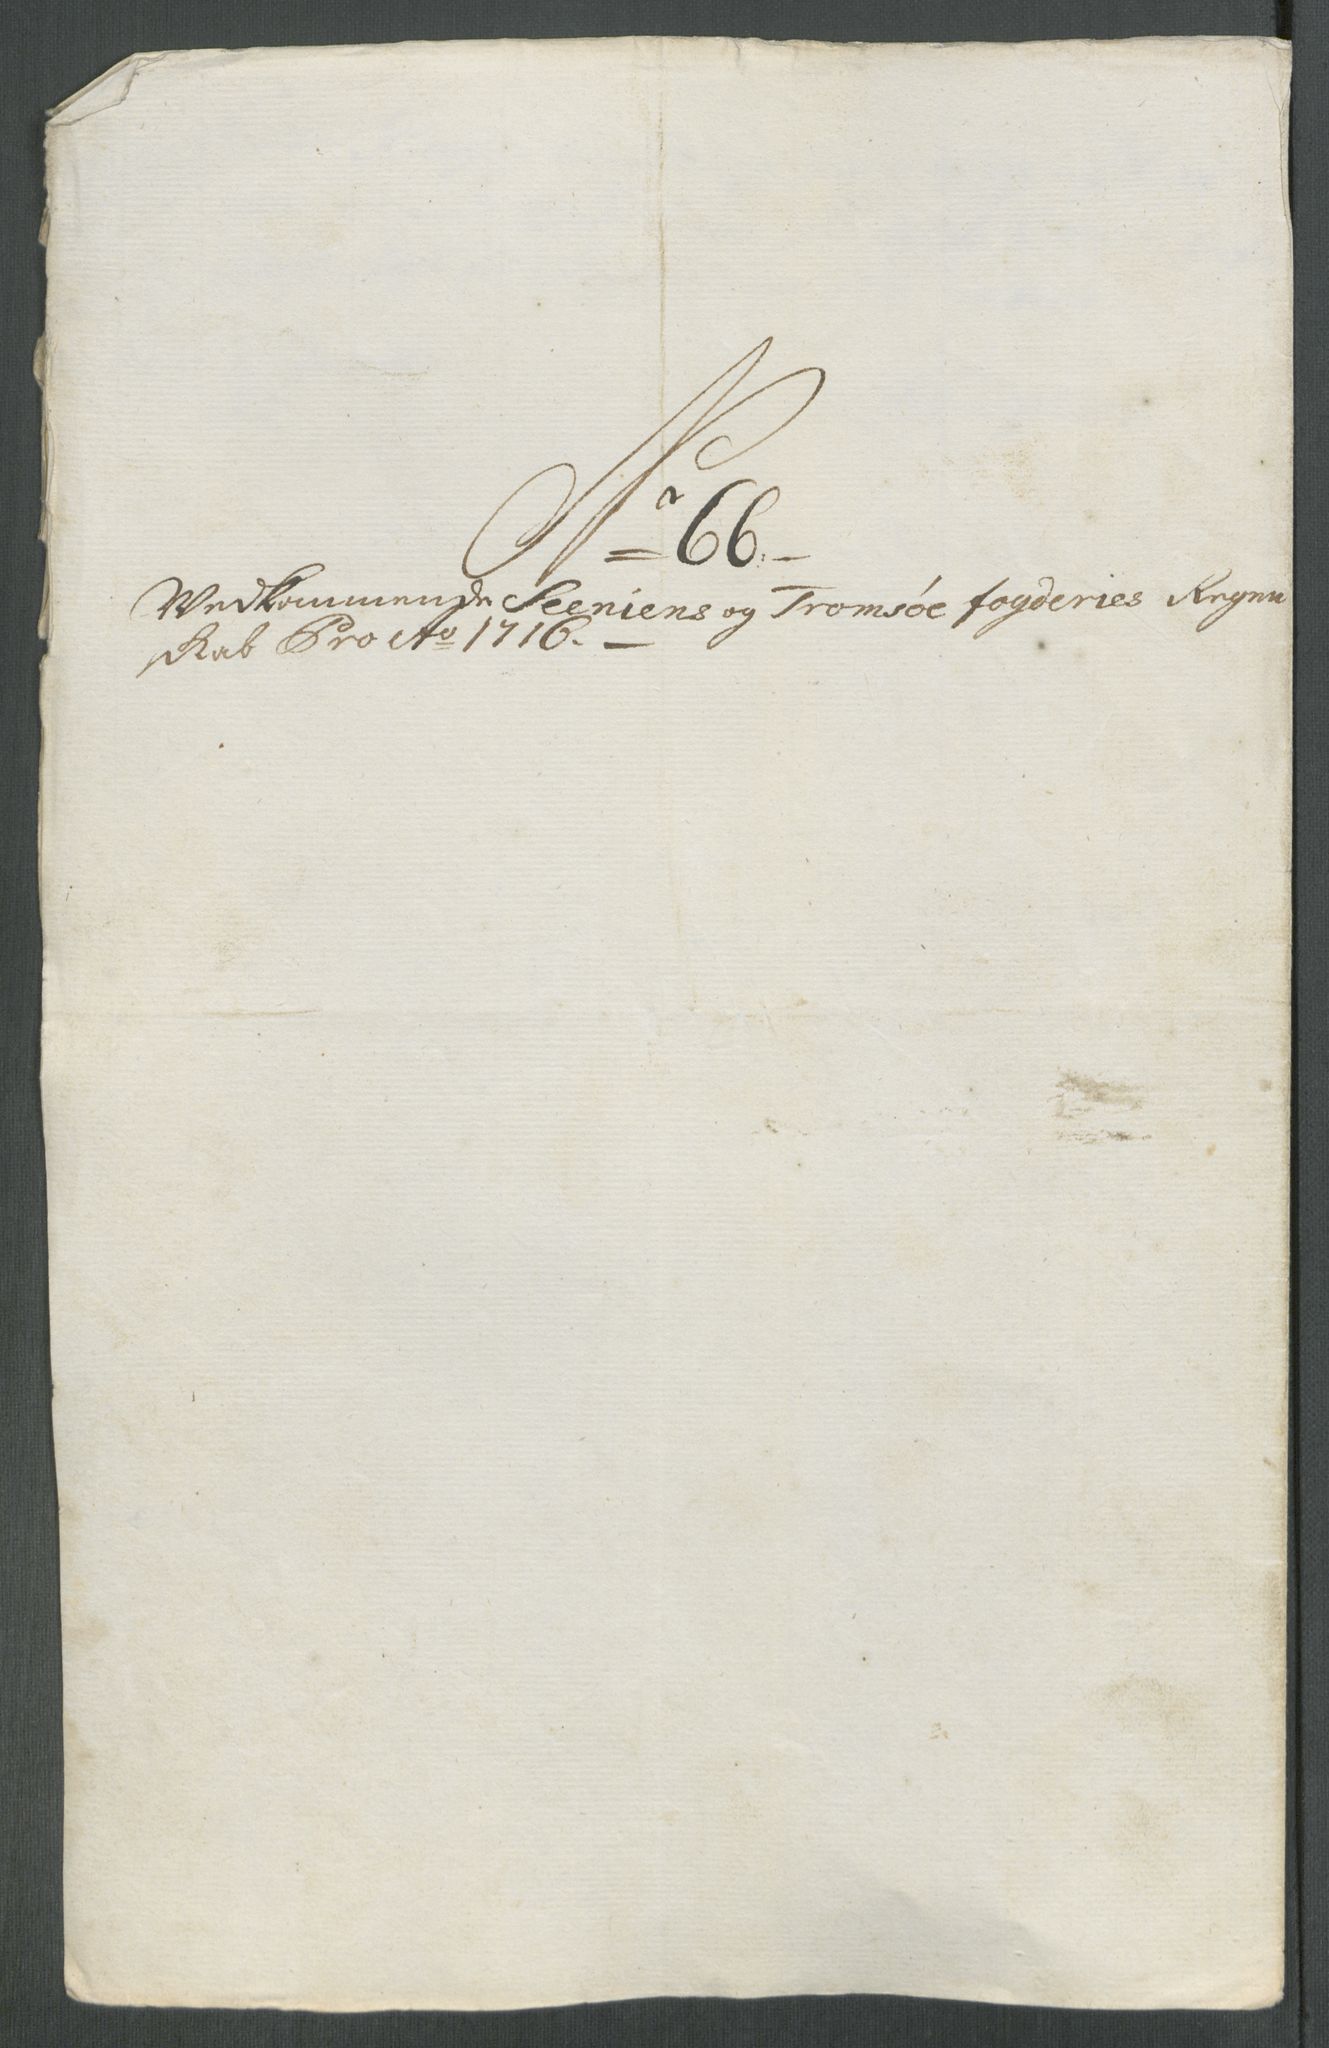 No 66.
Vedkommende Seeniens og Tromsøe fogderies Regnn
skab Pro Ao 1716.